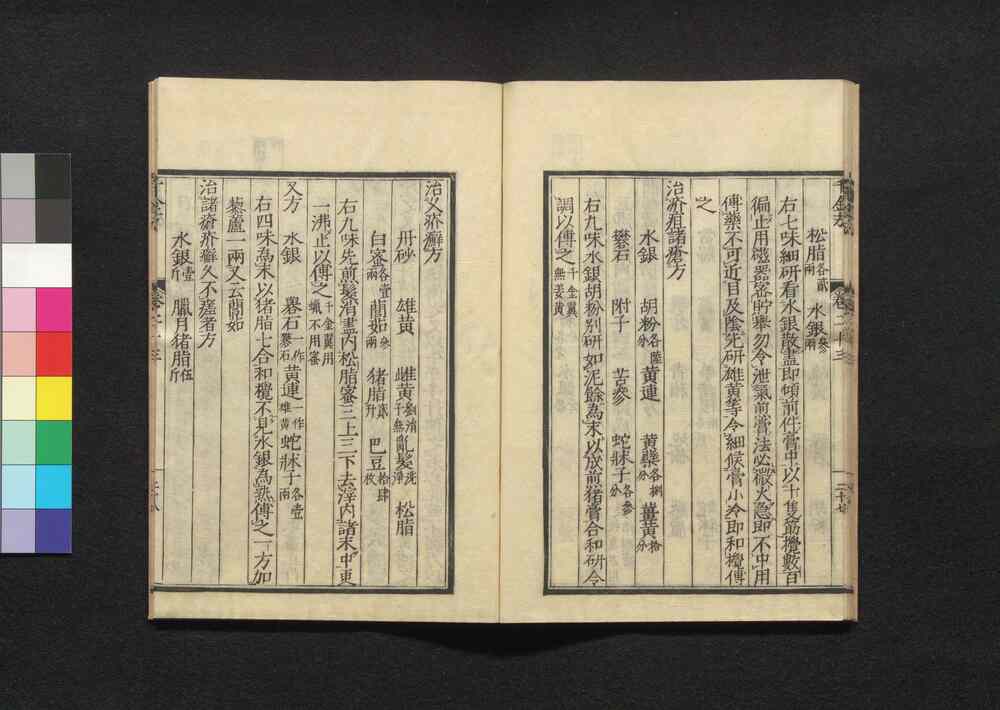 松脂各貳兩　水銀叄兩
右七味細研看水銀散盡即傾前件膏中以十隻筯攪數百
徧止用甆器密貯舉勿令泄氣煎膏法必微火急即不中用
傅藥不可近目及陰先研雄黃等令細候膏小冷即和攪傅
之
治疥疽諸瘡方
水銀　胡粉各陸分　黃連　黃蘗各捌分　薑黃拾分
礬石　附子　苦參　蛇牀子各參分
右九味水銀胡粉別研如泥餘為末以成煎猪膏合和研令
調以傅之千金翼無姜黃
治久疥癬方
丹砂　雄黃　雌黃劉涓子無　亂髮洗淨　松脂
白蜜各壹兩　䕡茹叄兩　猪脂貳升　巴豆拾肆枚
右九味先煎髮消盡內松脂蜜三上三下去滓內諸末中更
一沸止以傅之千金翼用蠟不用蜜
又方　水銀　礜石一作礬石　黃連一作雄黃　蛇牀子各壹兩
右四味為末以猪脂七合和攪不見水銀為熟傅之一方加
藜蘆一兩又云䕡茹
治諸瘡疥癬久不瘥者方
水銀壹斤　臘月猪脂伍斤